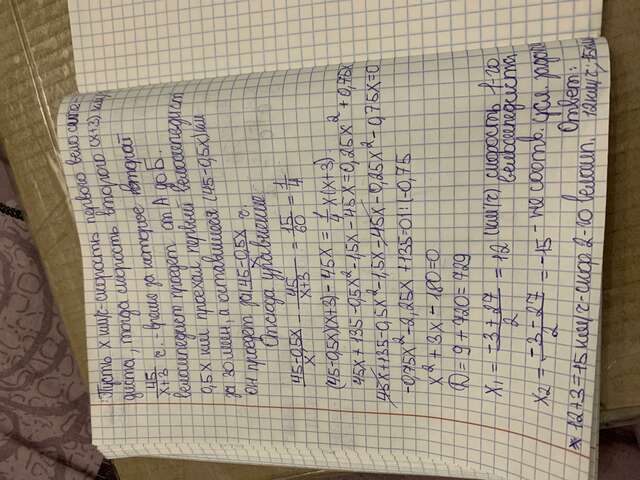 Пусть x км/ч - скорость первого велосипе-
диста, тогда скорость второго (x+3) км/ч
45/x+3 ч. - время за которое второй
велосипедист проедет от А до Б.
0,5x км проехал первый велосипедист
за 30 мин, а оставшиеся (45-0,5x) км
он проедет за 45-0,5x/x ч.
Отсюда уравнение:
45-0,5x/x - 45/x+3 = 15/60 = 1/4
(45-0,5x)(x+3)-45x = 1/4 x(x+3)
45x+135-0,5x²-1,5x-45x=0,25x²+0,75x
45x+135-0,5x²-1,5x-45x-0,25x²-0,75x=0
-0,75x²-2,25x+135=0 | (-0,75
x²+3x-180=0
D=9+720=729
x₁ = -3+27/2 = 12 (км/ч) скорость 1-го
велосипедиста
x₂ = -3-27/2 = -15 - не соотв. усл. задачи
12+3=15 км/ч - скор 2-го велосип.
Ответ:
12 км/ч; 15 км/ч